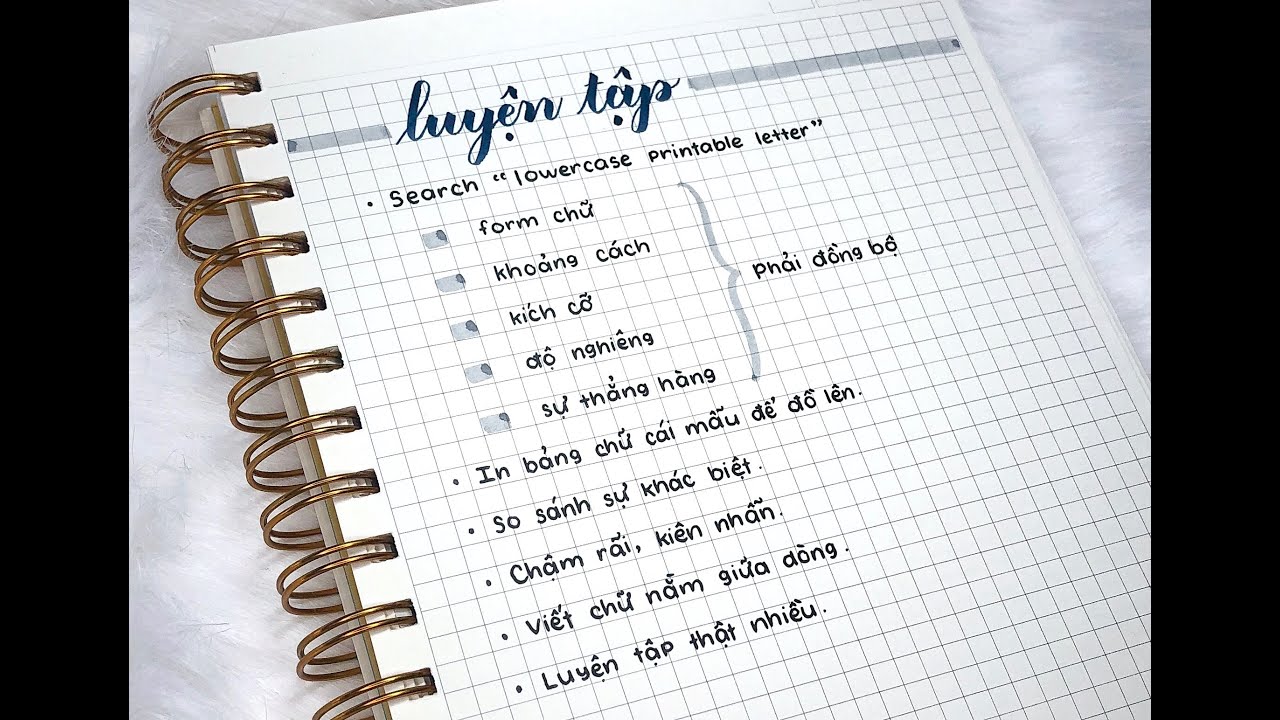 luyện tập
• Search “lowercase printable letter”
form chữ
khoảng cách
kích cỡ
độ nghiêng
sự thẳng hàng
phải đồng bộ
• In bảng chữ cái mẫu để đồ lên.
• So sánh sự khác biệt.
• Chậm rãi, kiên nhẫn.
• Viết chữ nằm giữa dòng.
• Luyện tập thật nhiều.